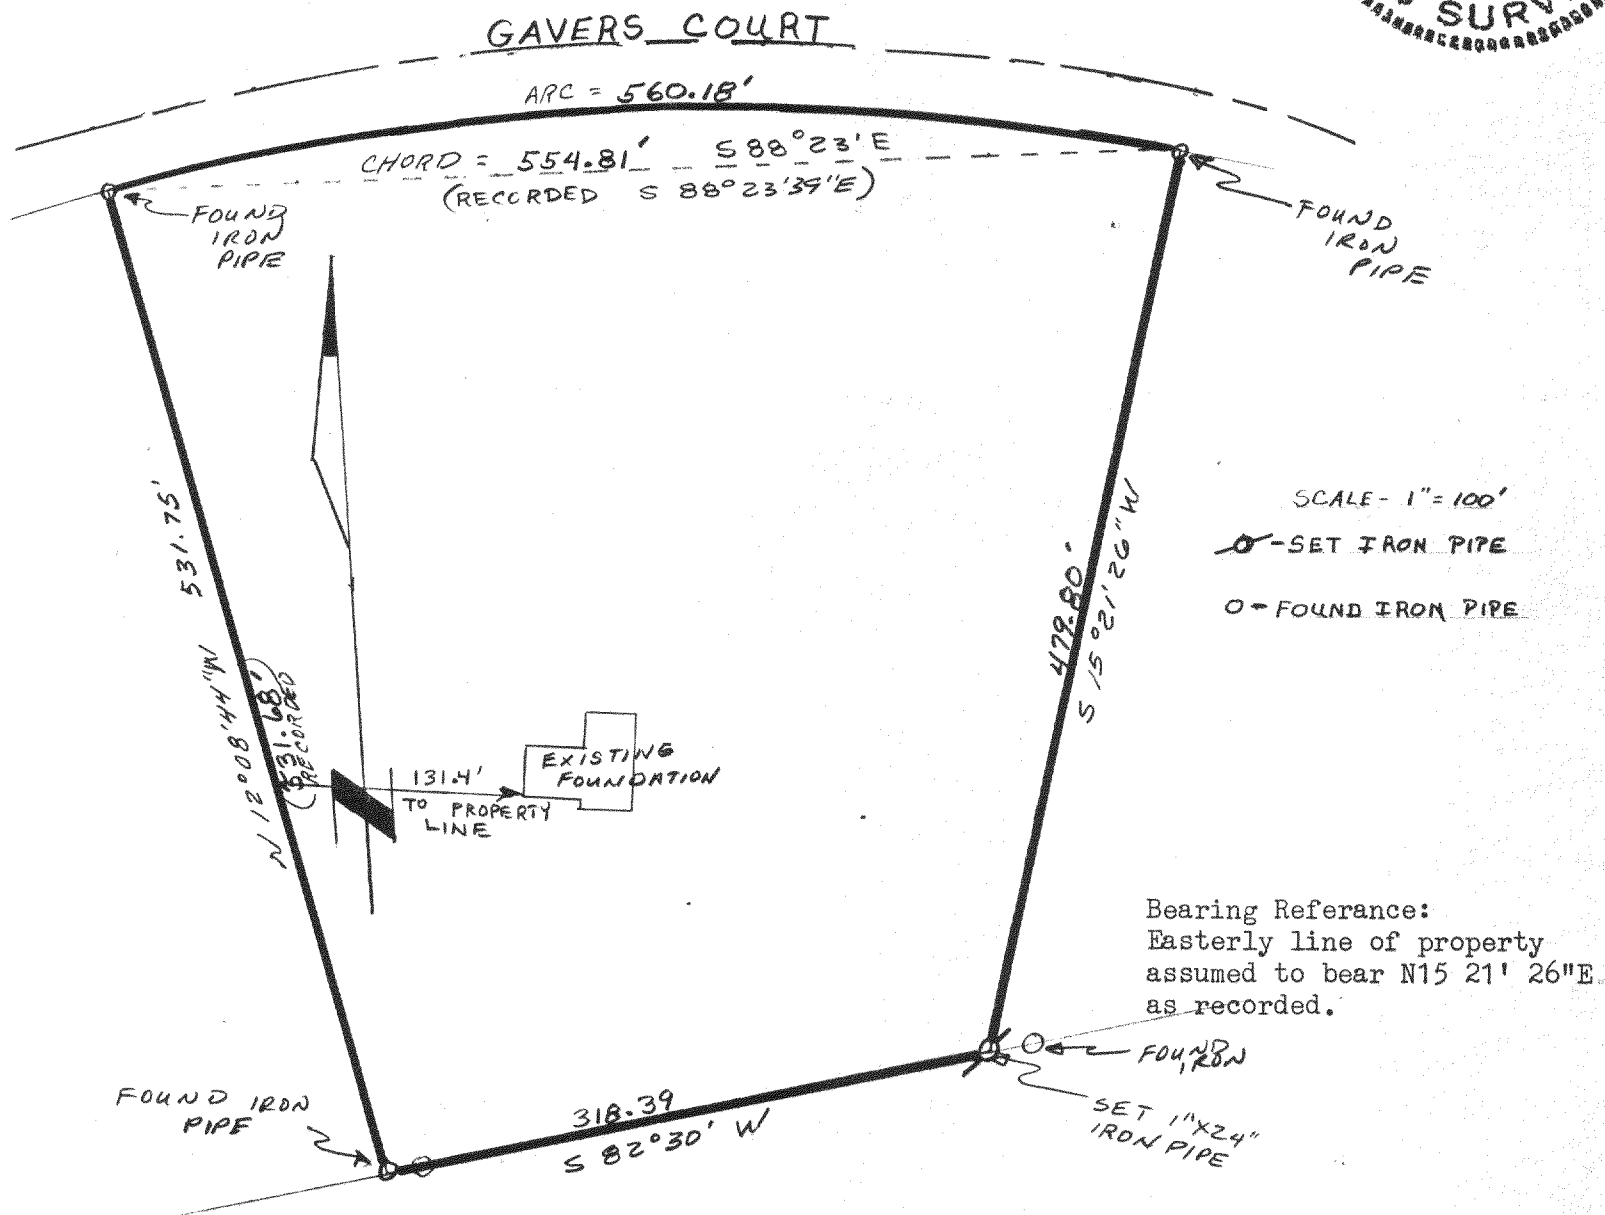 SURV
GAVERS COURT
ARC = 560.18'
CHORD = 554.81' S 88°23' E
(RECORDED S 88°23'39"E)
FOUND
IRON
PIPE
FOUND
IRON
PIPE
531.75'
N 12°08'44"W
(531.68'
RECORDED)
479.80'
S 15°21'26"W
SCALE- 1"=100'
-SET IRON PIPE
O - FOUND IRON PIPE
131.4'
TO PROPERTY
LINE
EXISTING
FOUNDATION
Bearing Referance:
Easterly line of property
assumed to bear N15 21' 26"E
as recorded.
FOUND
IRON
SET 1"X24"
IRON PIPE
FOUND IRON
PIPE
318.39
S 82°30' W